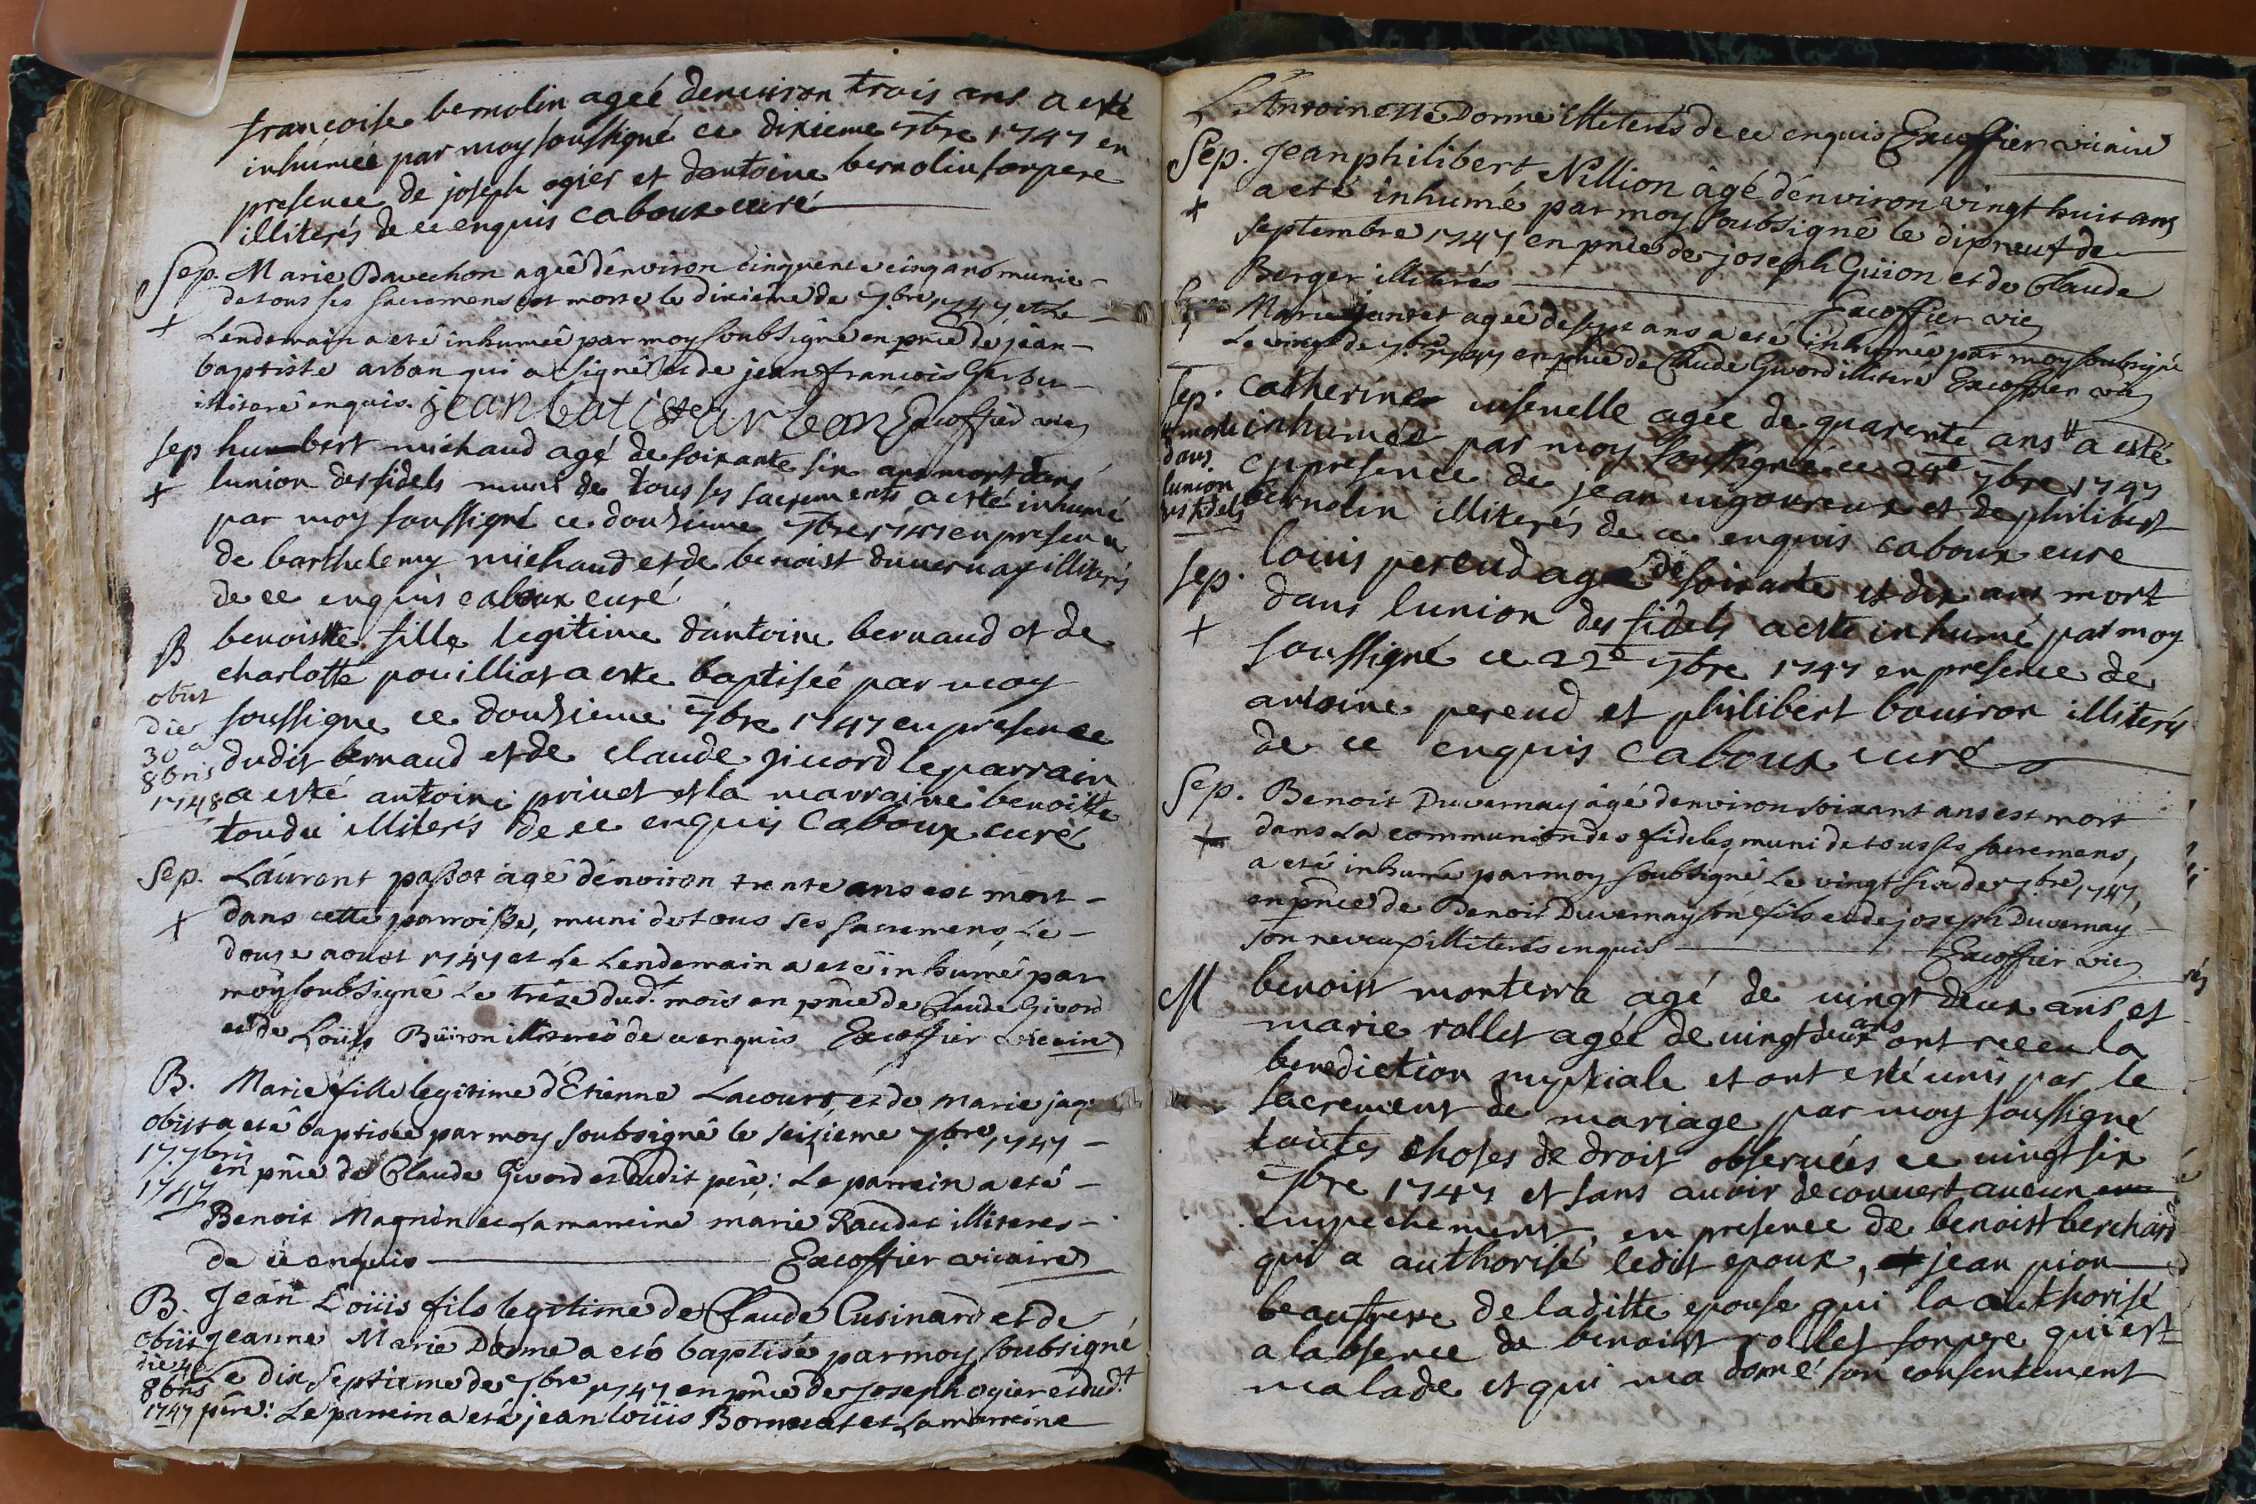 françoise bernolin ageé denviron trois ans a esté
inhúmeé par moy soussigné ce dixieme 7bre 1747 en
presence de joseph ogier et dantoine bernolin son pere
illiterés de ce enquis caboux curé
Sep. Marie Davechon agée dénviron cinquente cinq ans munie
+ de tous ses sacremens est morte le dixiéme de 7bre 1747 et Le
Lendemain a eté inhumée par moy soubsigné en pnce de jéan
baptiste arban qui a signé et de jean françois
illiteré enquis. jean batiste arban Excoffier vic
sep humbert michaud agé de soixante six ans mort dans
+ lunion des fidels muni de tous ses sacrements a esté inhumé
par moy soussigné ce douzieme 7bre 1747 en presence
de barthelemy michaud et de benoist duvernay illiterés
de ce enquis caboux curé
B benoiste fille legitime dantoine bernaud et de
charlotte pouilliat a esté baptiseé par moy
obiit die 30a 8bris 1748
soussigne ce douzieme 7bre 1747 en presence
dudit bernaud et de claude givord le parrain
a esté antoine privet et la marraine benoitte
toudu illiterés de ce enquis Caboux curé
Sep. Láurent passot agé dénviron trente ans est mort
+ dans cette parroisse, muni de tous ses sacremens, Le
douze aoust 1747 et Le Lendemain a eté inhumé par
moy soubsigné Le tréze dud.t mois en pnce de Claude Givord
et de Loüis Büiron illiterés de ce enquis Excoffier vicaire
B. Marie fille legitime d'Etienne Lacour, et de Marie jaq
obiit 17 7bris 1747
a eté baptisée par moy soubsigné le seizieme 7bre 1747
en pnce de Claude Givord et dudit pére: Le parrein a eté
Benoit Magnin et La marreine marie Raudet illiteres
de ce enquis Excoffier vicaire
B. Jean Loüis fils legitime de Claude Cusinard et de
obiit die 4a 8bris 1747
jeanne Marie Dorme a eté baptisé par moy soubsigné
Le dix septieme de 7bre 1747 en pnce de Joseph ogier et dud.t
pére: Le parrein a eté jean loüis Bornerat et La marreine
L'Antoinette Dorme illiterés de ce enquis Excoffier vicaire
Sep. Jean philibert Nillion âgé dénviron vingt huit ans
+ a eté inhumé par moy soubsigné le dixneuf de
septembre 1747 en pnce de joseph Güion et de Claude
Berger illiterés Excoffier vic
Marie Janret agée de sept ans a eté inhumée par moy soubsigné
Le vingt de 7bre 1747 en pnce de Claude Givord illiteré Excoffier vic
sep. catherine agée de quarente ans # a esté
# morte dans lunion des fidels
inhumée par moy soussigné ce 24e 7bre 1747
en presence de jean vigoureux et de philibert
bernolin illiterés de ce enquis caboux curé
sep. louis pereud agé de soixante et dix ans mort
+ dans lunion des fidels a esté inhumé par moy
soussigné ce 22e 7bre 1747 en presence de
antoine pereud et philibert bouiron illiterés
de ce enquis Caboux curé
Sep. Benoit Duvernay âgé denviron soixant ans est mort
+ dans La communion des fideles, muni de tous ses sacremens,
a eté inhumé par moy soubsigné Le vingt six de 7bre 1747,
en pnce de Benoit Duvernay son fils et de joseph Duvernay
son neveu illiterés enquis Excoffier vic
M benoist monterra agé de vingt deux ans et
marie rollet agée de vingt deux ans ont receu la
benediction nuptiale et ont esté unis par le
sacrement de mariage par moy soussigné
toutes choses de droit observées ce vingt six
7bre 1747 et sans avoir decouvert aucun
empechement, en presence de benoist berchard
qui a authorisé ledit epoux, jean pion
beaufrere de laditte epouse qui la authorisé
a labsence de benoist rollet son pere qui est
malade et qui ma donné son consentement